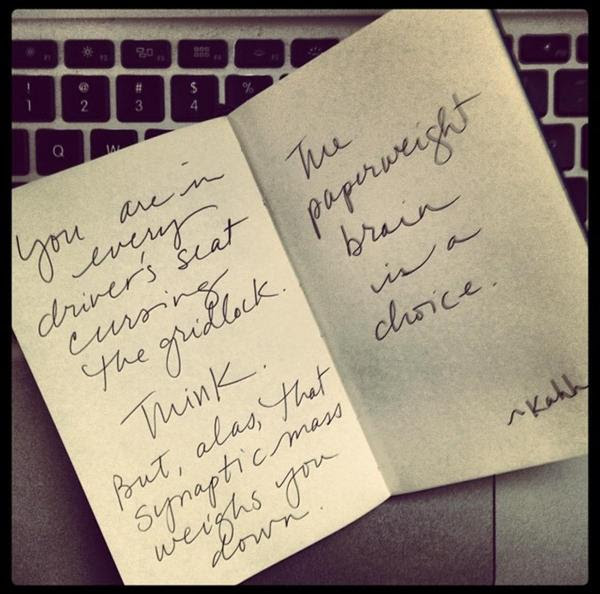 ! 1
@ 2
# 3
$ 4
Q
W
You are in
every
driver's seat
cursing
the gridlock.
Think.
But, alas, that
synaptic mass
weighs you
down.
The
paperweight
brain
is a
choice.